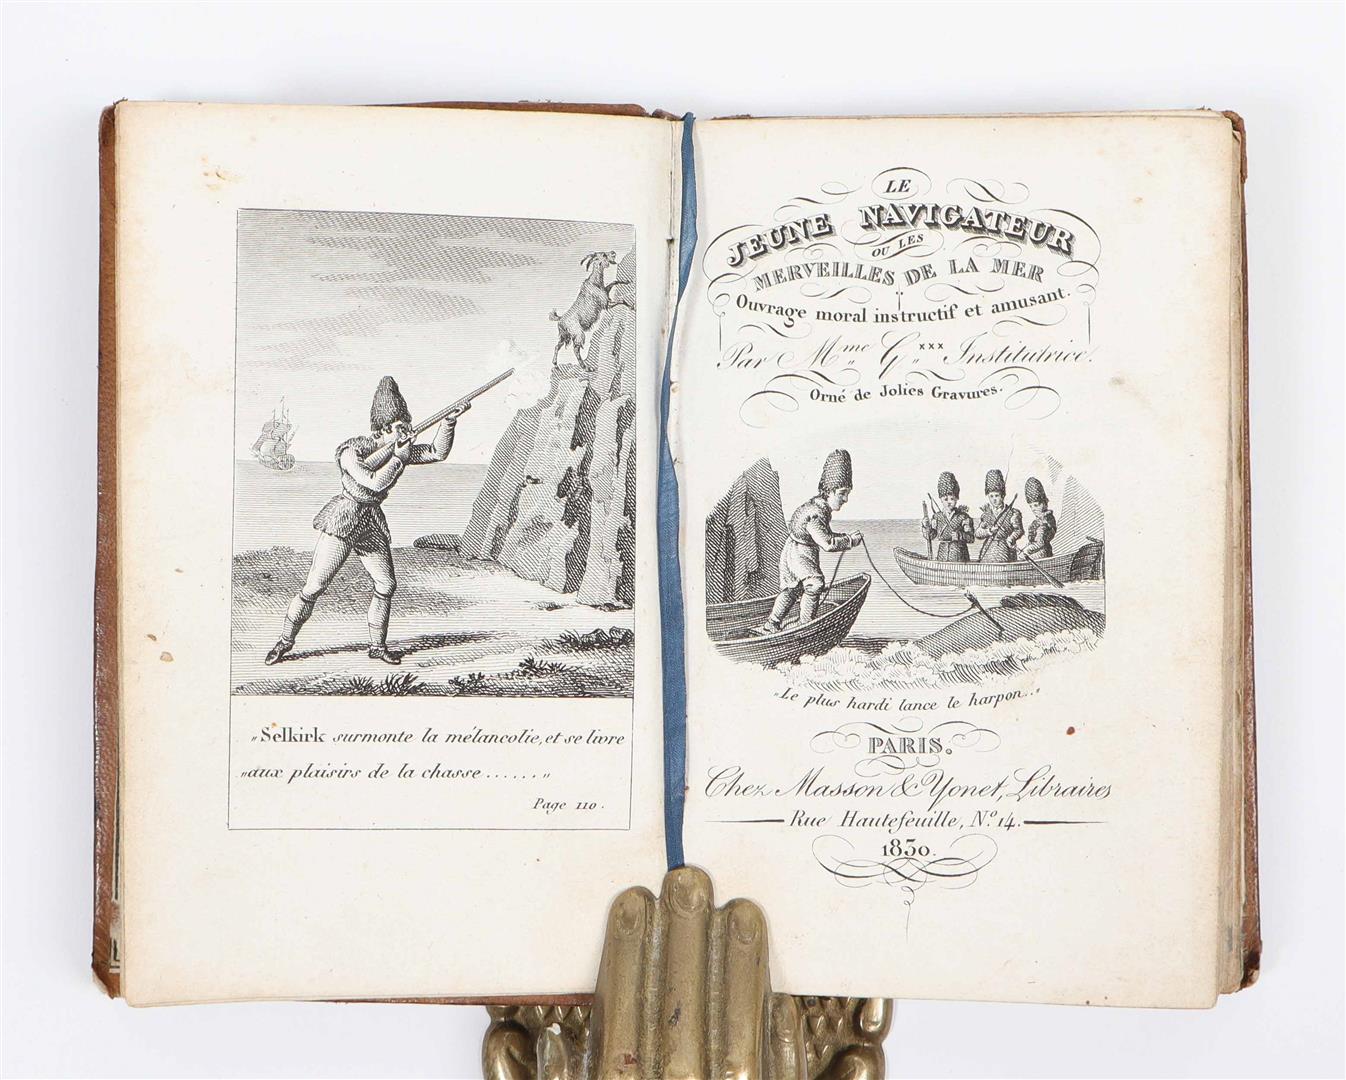 „Selkirk surmonte la mélancolie, et se livre
„aux plaisirs de la chasse......„
Page 110.
LE
JEUNE NAVIGATEUR
OU LES
MERVEILLES DE LA MER
Ouvrage moral instructif et amusant.
Par Mme G.xxx Institutrice.
Orné de Jolies Gravures.
„Le plus hardi lance le harpon..„
PARIS.
Chez Masson & Yonet, Libraires
Rue Hautefeuille, No. 14.
1830.